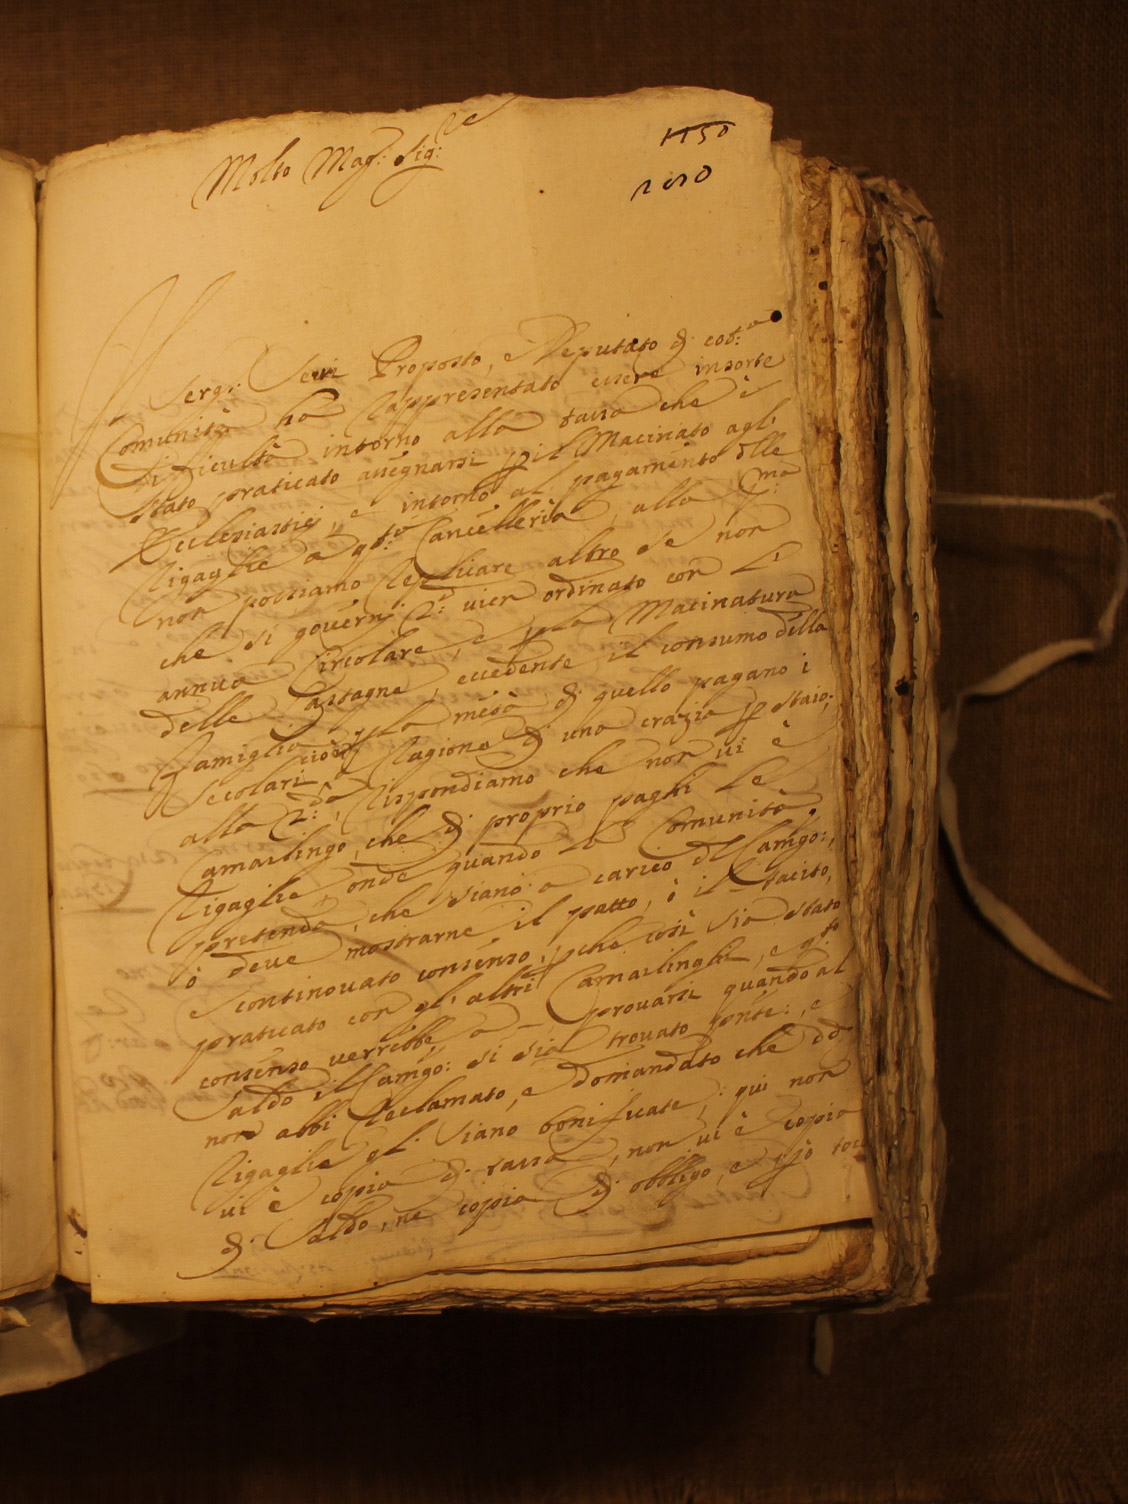 Molto Mag: Sig:re
1150
Serg: Seri Proposto, e Deputato di cot:a
Comunità hà rappresentato essere insorte
difficultà intorno alla tassa che è
stato praticato assegnarsi p il Macinato agl'
Ecclesiastici, e intorno al pagamento dlle
Rigaglie a qta Cancelleria, alla P:ma
non possiamo replicare altro se non
che si governi c: vien ordinato con l'
annua Circolare, e p la Macinatura
delle Castagne, eccedente il consumo della
famiglia cioè p la metà di quello pagano i
Secolari, à ragione di una crazia p staio;
alla 2:da, rispondiamo che non vi è
Camarlingo, che di proprio paghi le
Rigaglie, onde quando la Comunità
pretenda, che siano a carico dl Camgo:,
ò deve mostrarne il patto, ò il tacito,
e continovato consenso, pche così sia stato
praticato con gl'altri Camarlinghi, e qto
consenso verrebbe a provarsi quando al
saldo il Camgo: si sia trovato pnte:, e
non abbi reclamato, e domandato che dd
Rigaglie gl: siano bonificate; qui non
vi è copia di tassa, non vi è copia
di saldo, nè copia di obbligo, e pciò